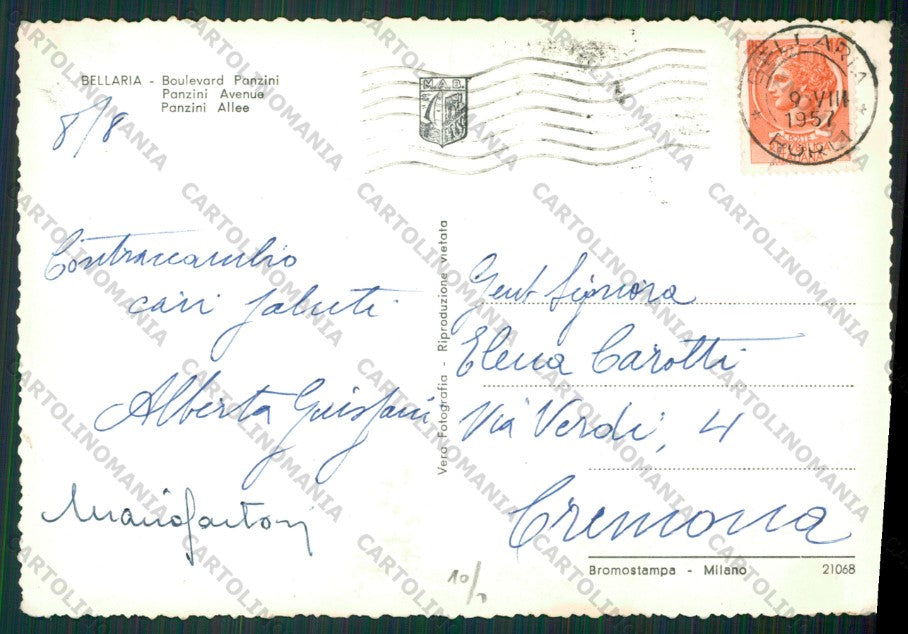 BELLARIA - Boulevard Panzini
Panzini Avenue
Panzini Allee
8/8
M.A.B.
BELLARIA
9 VIII
1957
Contraccambio
cari saluti
Alberta
Vera Fotografia - Riproduzione vietata
Gent Signora
Elena Carotti
Via Verdi, 4
Cremona
10/
Bromostampa - Milano 21068
CARTOLINOMANIA